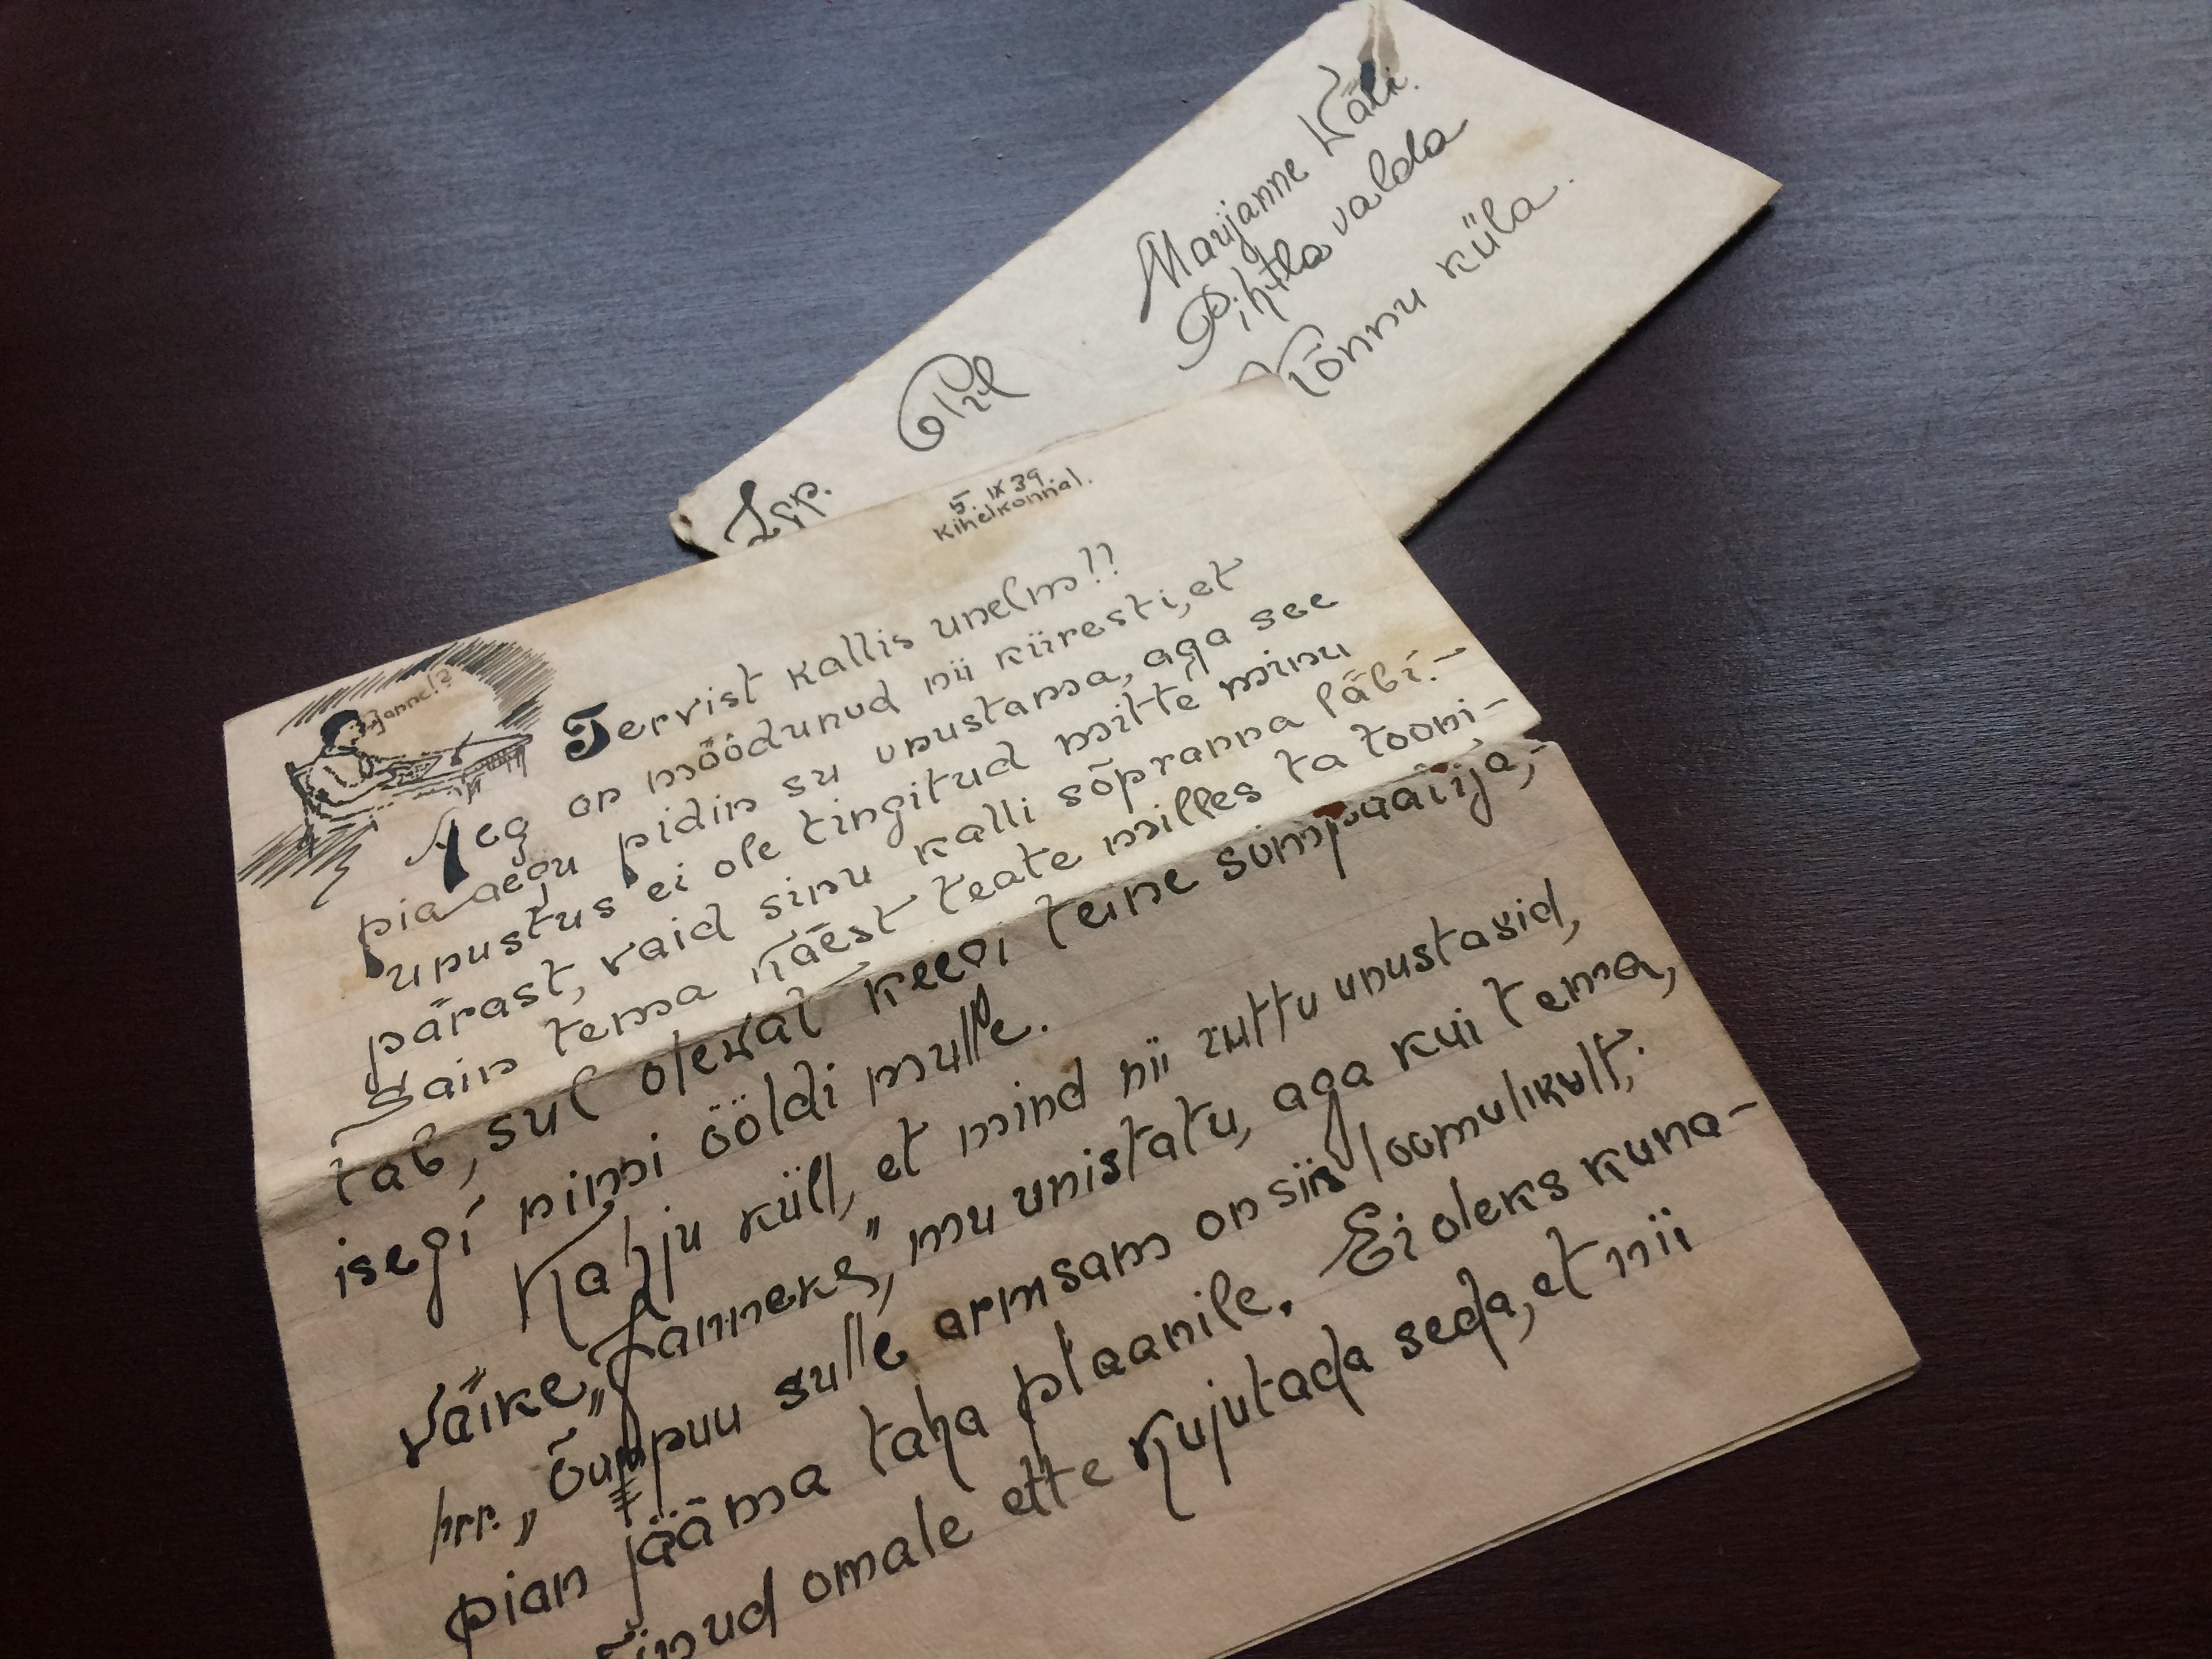 Marijanne Käli.
Pihtla valda
Kõnnu küla.
Prl
Lgp.
5. IX 39.
Kihelkonnal.
Janne!?
Tervist kallis unelm!!
Aeg on möödunud nii kiiresti, et
pia aegu pidin su unustama, aga see
unustus ei ole tingitud mitte minu
pärast, vaid sinu kalli sõpranna läbi.-
Sain tema käest teate milles ta tooni-
tab, sul olevat keegi teine sümpaatija,-
isegi nimi ööldi mulle.
Kahju küll, et mind nii ruttu unustasid,
väike „Janneke", mu unistatu, aga kui tema,
hrr. „Õunpuu sulle armsam on siis loomulikult,
pian jääma taha plaanile. Ei oleks kuna-
omale ette kujutada seda, et nii